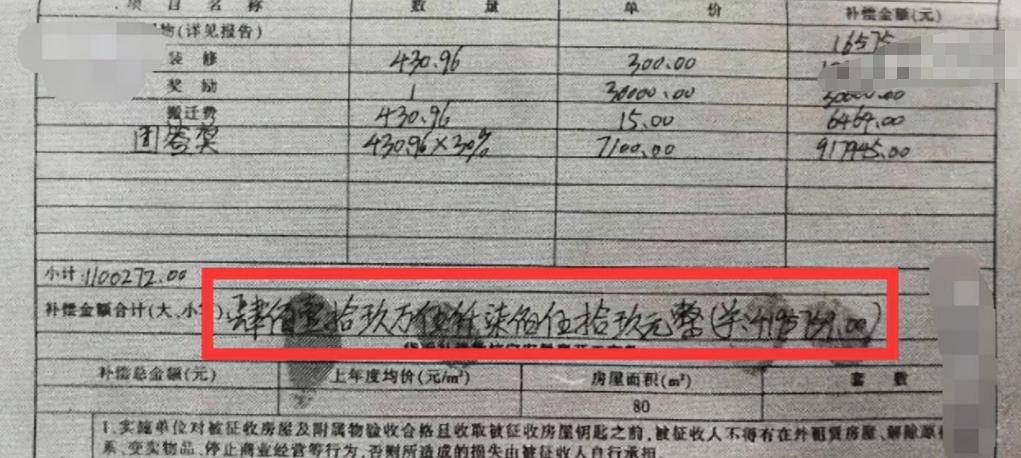 项目名称 数量 单价 补偿金额(元)
物(详见报告) 16575
装修 430.96 300.00
奖励 1 30000.00 30000.00
搬迁费 430.96 15.00 6464.00
团签奖 430.96×30% 7100.00 917945.00
小计:1100272.00
补偿金额合计(大、小 肆佰壹拾玖万伍仟柒佰伍拾玖元整(￥:4195759.00)
补偿总金额(元) 上年度均价(元/m²) 房屋面积(m²) 套数
80
1.实施单位对被征收房屋及附属物验收合格且收取被征收房屋钥匙之前,被征收人不得有在外租赁房屋、解除原
系、变卖物品、停止商业经营等行为,否则所造成的损失由被征收人自行承担。